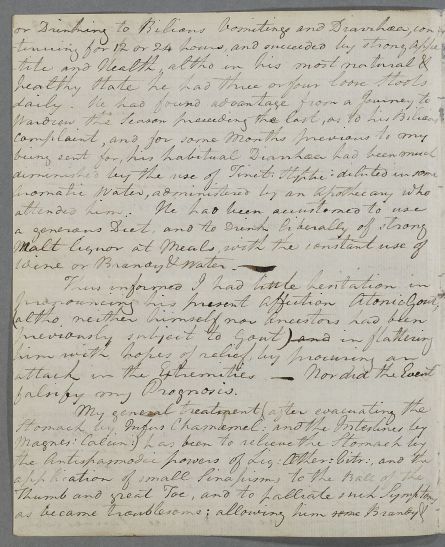 or Drinking to Bilious Vomitings and Diarrhœa, con
tinuing for 12 or 24 hours, and succeeded by strong Appe
tite and Health, altho in his most natural &
healthy State he had three or four loose Stools
daily. He had found advantage from a Journey to
the Season preceding the last, as to his Bilious
Complaint, and for some Months previous to my
being sent for, his habitual Diarrhœa had been much
diminished by the use of Tinct: diluted in some
Aromatic Water, administered by an Apothecary who
attended him. He had been accustomed to use
a generous Diet, and to drink liberally of strong
Malt Liquor at Meals, with the constant use of
Wine or Brandy & Water. —
Thus informed I had little hesitation in
pronouncing his present Affection Atonic Gout,
(altho neither himself nor Ancestors had been
previously subject to Gout) and in flattering
him with hopes of relief, by procuring an
attack in the Extremities — Nor did the Event
falsify my Prognosis.
My general treatment (after evacuating the
Stomach by Infus: Chamæmel: and the Intestines by
Magnes: Calcin:) has been to relieve the Stomach by
the Antispasmodic powers of Liq: Æther: Vitr:, and the
application of small Sinapisms to the Ball of the
Thumb and great Toe, and to palliate such Symptoms
as became troublesome; allowing him some Brandy &